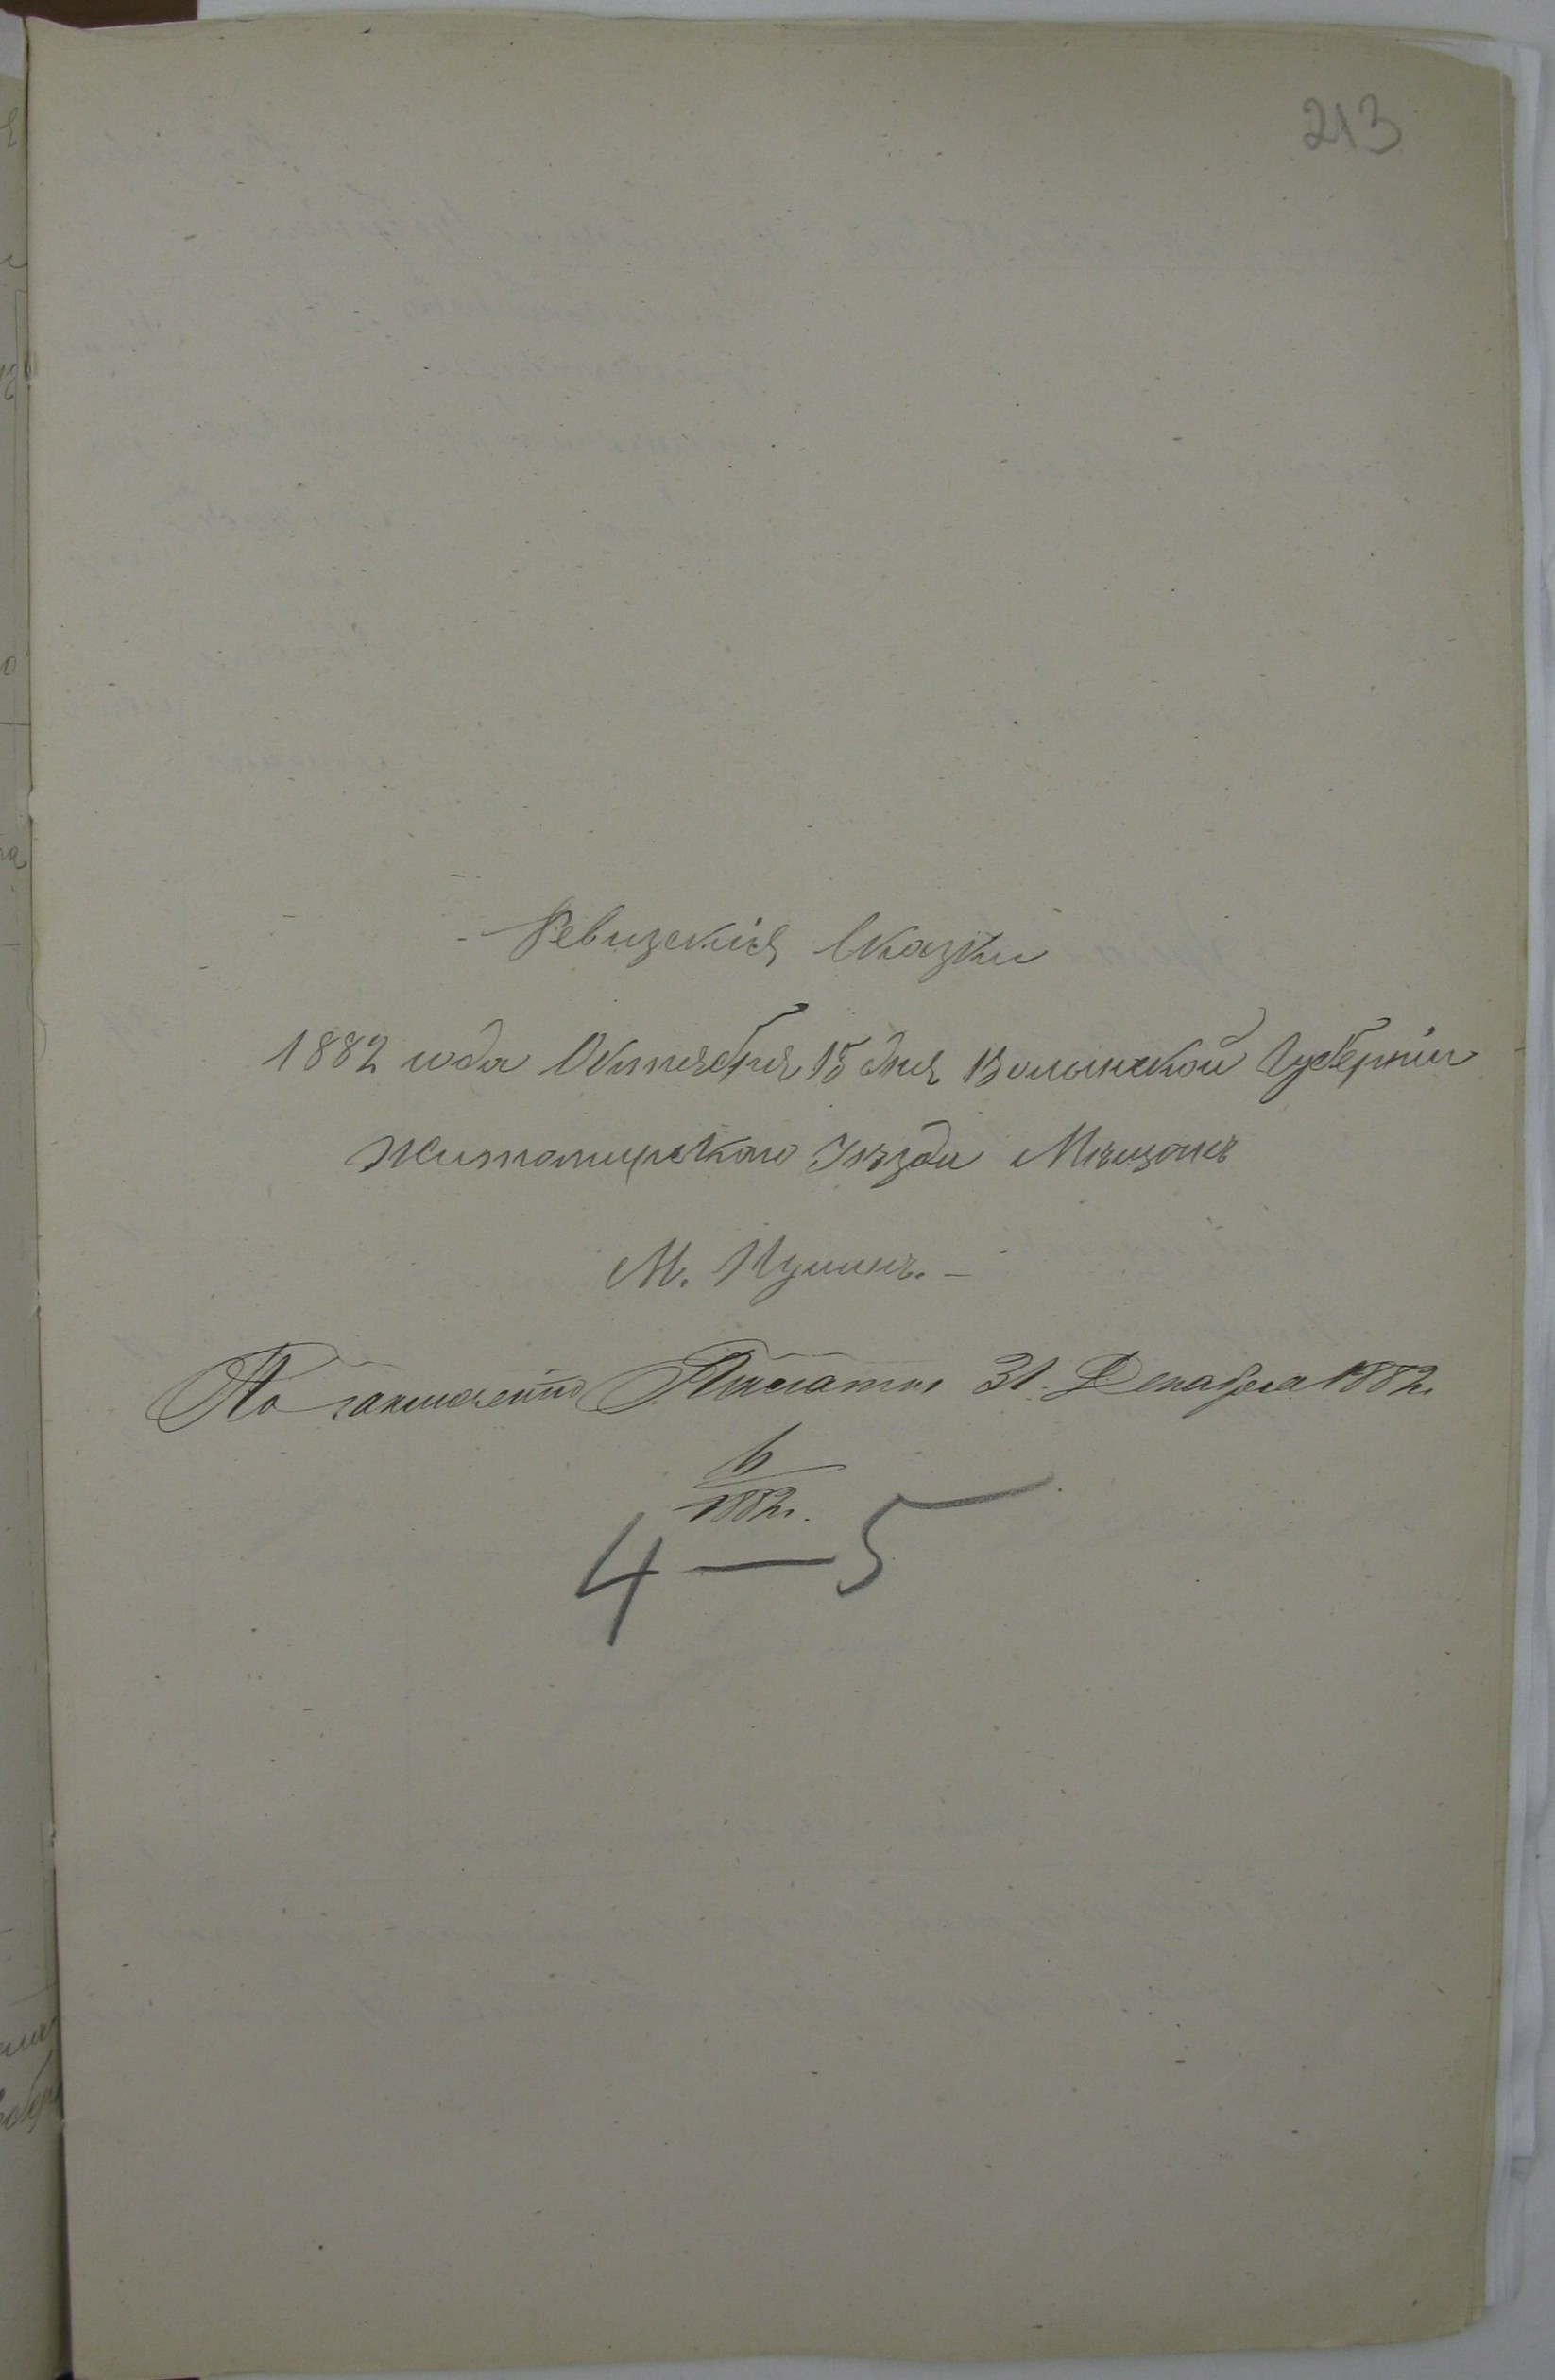 213
Ревизскія Сказки
1882 года Октября 15 дня Волынской Губерніи
Житомирскаго Уѣзда Мѣщанъ
М. Пулинъ. –
По заключенію Палаты 31 Декабря 1882 г.
6
1882 г.
4 — 5